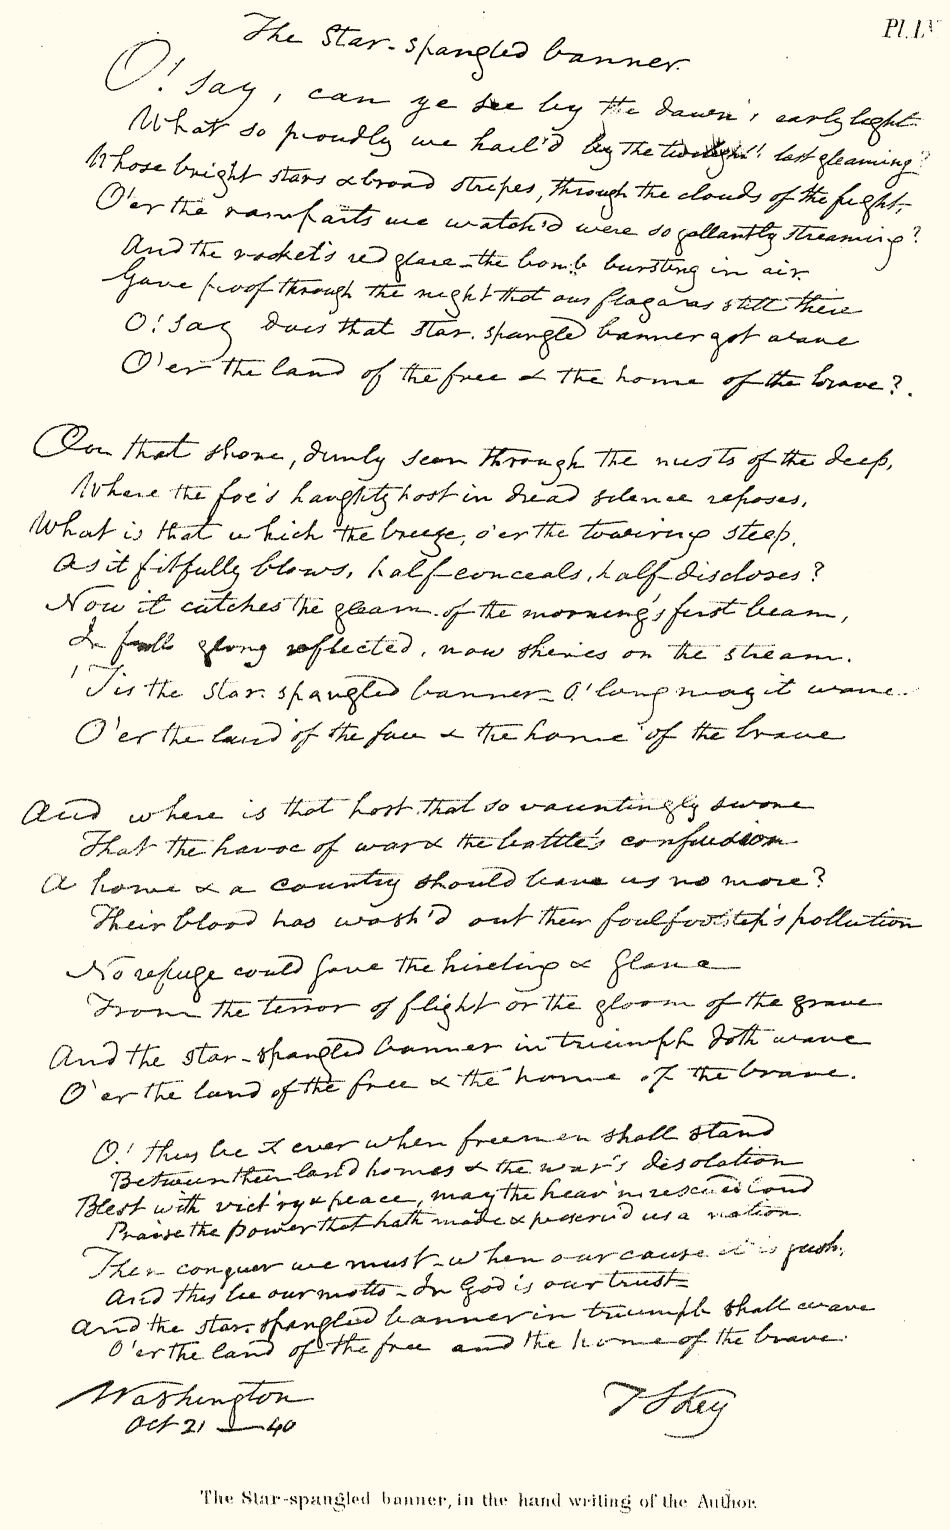 The Star-spangled banner.
Pl. LV
O! say, can ye see by the dawn's early light
What so proudly we hail'd by the twilight's last gleaming?
Whose bright stars & broad stripes, through the clouds of the fight,
O'er the ramparts we watch'd were so gallantly streaming?
And the rocket's red glare – the bomb bursting in air
Gave proof through the night that our flag was still there
O! say does that star-spangled banner yet wave
O'er the land of the free & the home of the brave?
On that shore, dimly seen through the mists of the deep,
Where the foe's haughty host in dread silence reposes,
What is that which the breeze, o'er the towering steep,
As it fitfully blows, half-conceals, half-discloses?
Now it catches the gleam of the morning's first beam,
In full glory reflected, now shines on the stream.
'Tis the star-spangled banner – O! long may it wave
O'er the land of the free & the home of the brave
And where is that host that so vauntingly swore
That the havoc of war & the battle's confusion
A home & a country should leave us no more?
Their blood has wash'd out their foul footstep's pollution
No refuge could save the hireling & slave
From the terror of flight or the gloom of the grave
And the star-spangled banner in triumph doth wave
O'er the land of the free & the home of the brave.
O! thus be it ever when freemen shall stand
Between their lov'd homes & the war's desolation
Blest with vict'ry & peace, may the heav'n rescued land
Praise the power that hath made & preserv'd us a nation
Then conquer we must – when our cause it is just,
And this be our motto – In God is our trust –
And the star-spangled banner in triumph shall wave
O'er the land of the free and the home of the brave.
Washington
Oct 21 – 40
F S Key
The Star-spangled banner, in the hand writing of the Author.